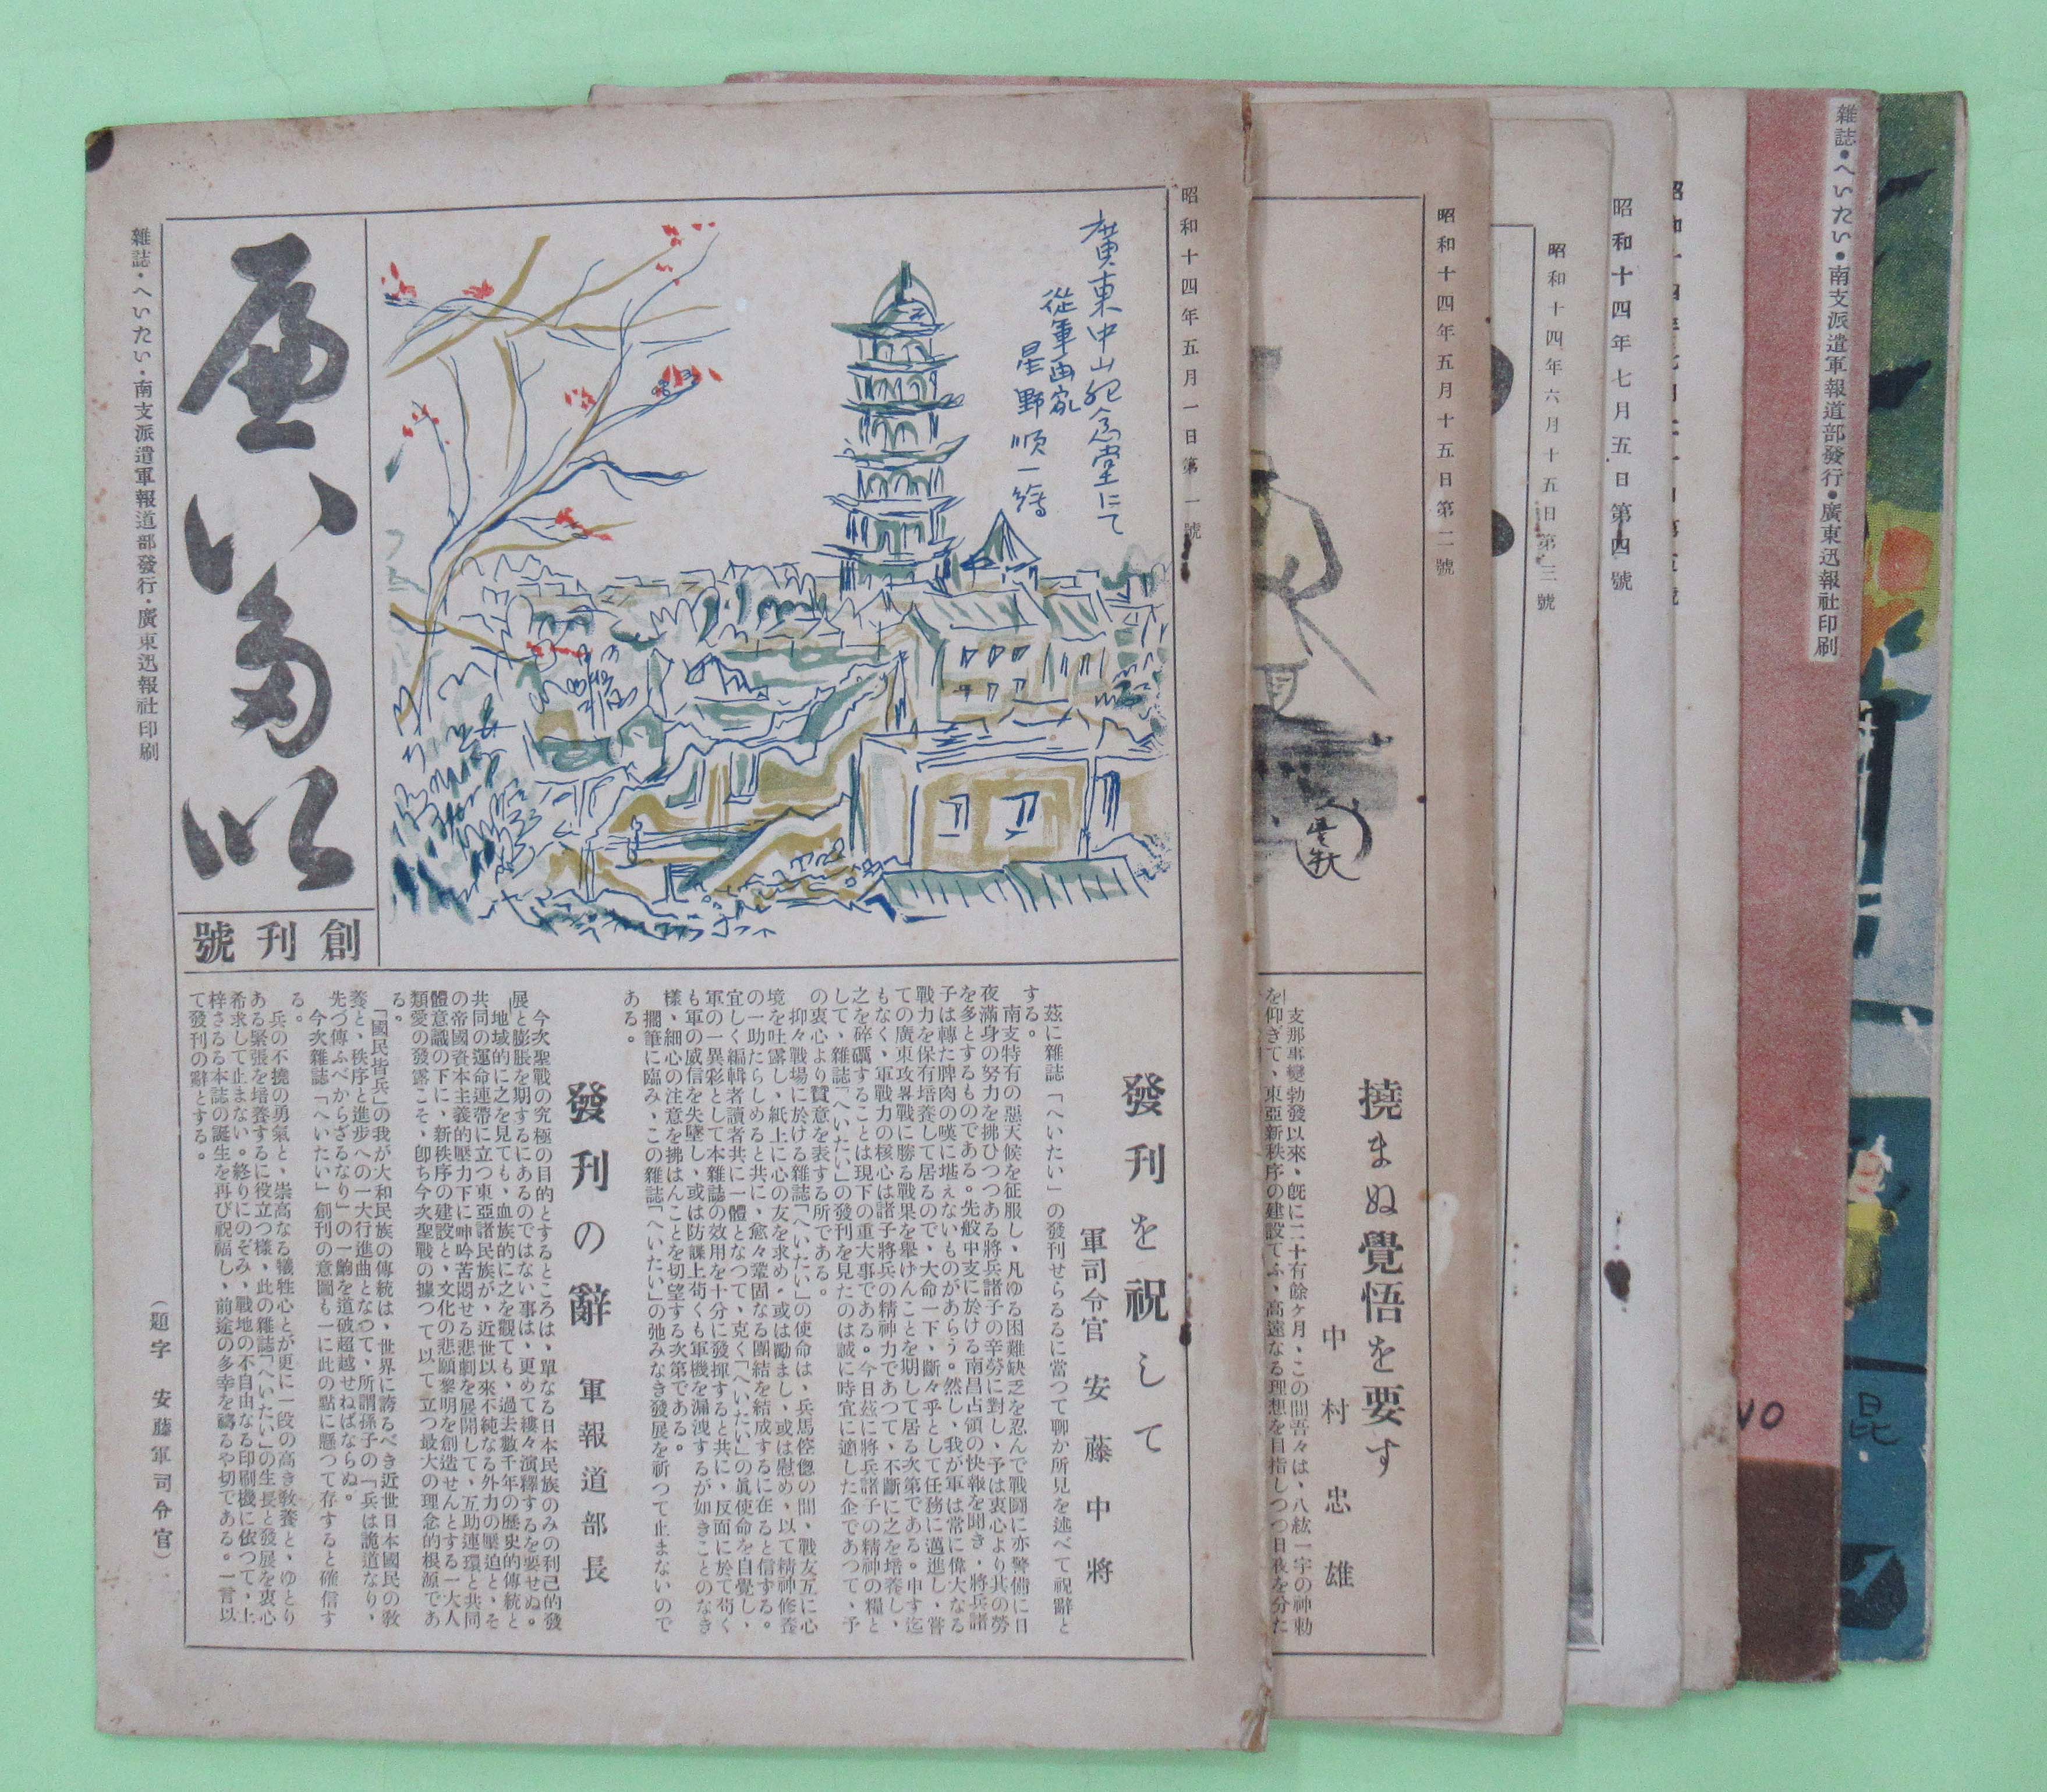 昭和十四年五月一日第一號
廣東中山紀念堂にて
從軍画家
星野順一繪
へいたい
創刊號
雜誌・へいたい・南支派遣軍報道部發行・廣東迅報社印刷
發刊を祝して
軍司令官 安藤中將
茲に雜誌「へいたい」の發刊せらるるに當つて聊か所見を述べて祝辭と
する。
南支特有の惡天候を征服し、凡ゆる困難缺乏を忍んで戰鬪に亦警備に日
夜滿身の努力を拂ひつつある將兵諸子の辛勞に對し、予は衷心より其の勞
を多とするものである。先般中支に於ける南昌占領の快報を聞き、將兵諸
子は轉た脾肉の嘆に堪えないものがあらう。然し、我が軍は常に偉大なる
戰力を保有培養して居るので、大命一下、斷々乎として任務に邁進し、嘗
ての廣東攻畧戰に勝る戰果を舉げんことを期して居る次第である。申す迄
もなく、軍戰力の核心は諸子將兵の精神力であつて、不斷に之を培養し、
之を碎礪することは現下の重大事である。今日茲に將兵諸子の精神の糧と
して、雜誌「へいたい」の發刊を見たのは誠に時宜に適した企であつて、予
の衷心より賛意を表する所である。
抑々戰場に於ける雜誌「へいたい」の使命は、兵馬倥偬の間、戰友互に心
境を吐露し、紙上に心の友を求め、或は勵まし、或は慰め、以て精神修養
の一助たらしめると共に、愈々鞏固なる團結を結成するに在ると信する。
宜しく編輯者讀者共に一體となつて、克く「へいたい」の眞使命を自覺し、
軍の一異彩として本雜誌の效用を十分に發揮すると共に、反面に於て苟く
も軍の威信を失墜し、或は防諜上苟くも軍機を漏洩するが如きことのなき
樣、細心の注意を拂はんことを切望する次第である。
擱筆に臨み、この雜誌「へいたい」の弛みなき發展を祈つて止まないので
ある。
發刊の辭
軍報道部長
今次聖戰の究極の目的とするところは、單なる日本民族のみの利己的發
展と膨脹を期するにあるのではない事は、更めて縷々演釋するを要せぬ。
地域的に之を見ても、血族的に之を觀ても、過去數千年の歷史的傳統と
共同の運命連帶に立つ東亞諸民族が、近世以來不純なる外力の壓迫と、そ
の帝國資本主義的壓力下に呻吟苦悶せる悲劇を展開して、互助連環と共同
體意識の下に、新秩序の建設と、文化の悲願黎明を創造せんとする一大人
類愛の發露こそ、卽ち今次聖戰の據つて以て立つ最大の理念的根源であ
る。
「國民皆兵」の我が大和民族の傳統は、世界に誇るべき近世日本國民の敎
養と、秩序と進步への一大行進曲となつて、所謂孫子の「兵は詭道なり、
先づ傳ふべからざるなり」の一齣を道破超越せねばならぬ。
今次雜誌「へいたい」創刊の意圖も一に此の點に懸つて存すると確信す
る。
兵の不撓の勇氣と、崇高なる犧牲心とが更に一段の高き敎養と、ゆとり
ある緊張を培養するに役立つ樣、此の雜誌「へいたい」の生長と發展を衷心
希求して止まない。終りにのぞみ、戰地の不自由なる印刷機に依つて、上
梓さるる本誌の誕生を再び祝福し、前途の多幸を禱るや切である。一言以
て發刊の辭とする。
（題字 安藤軍司令官）
昭和十四年五月十五日第二號
撓まぬ覺悟を要す
中村忠雄
支那事變勃發以來、旣に二十有餘ヶ月、この間吾々は、八紘一宇の神勅
を仰ぎて、東亞新秩序の建設てふ、高遠なる理想を目指しつつ日夜を分た
昭和十四年六月十五日第三號
昭和十四年七月五日第四號
雜誌・へいたい・南支派遣軍報道部發行・廣東迅報社印刷
昆